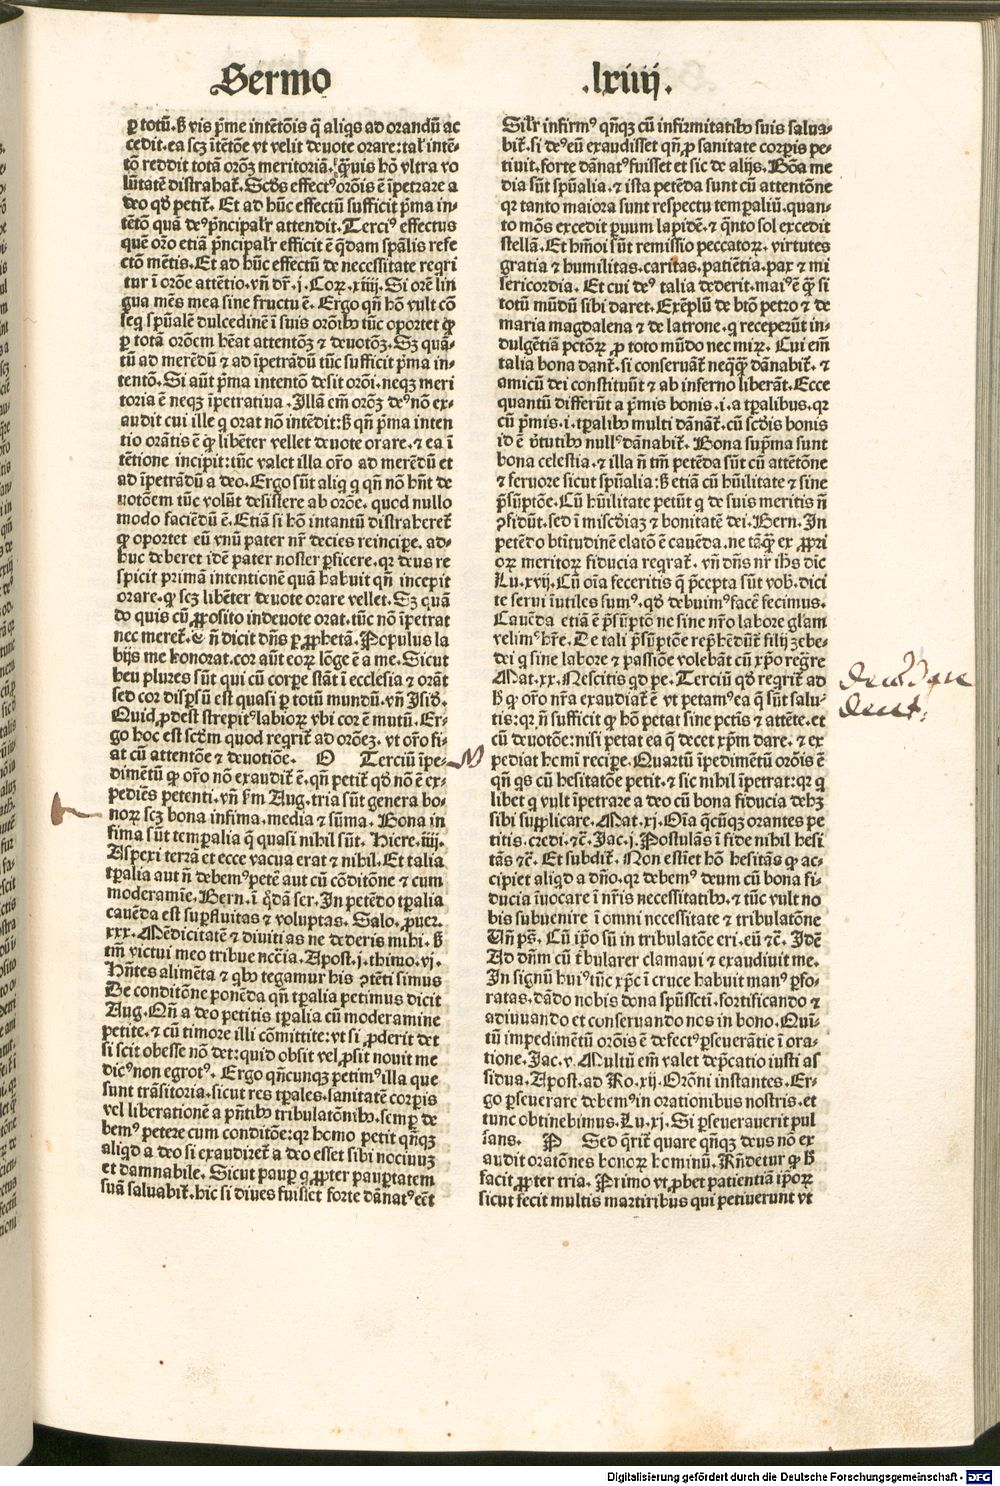 Sermo .lxiiij.
ꝑ totū. ꝟ vis p̄me intētōis q̄ aliqs ad orandū ac
cedit. ea scꝫ itētōe vt velit deuote orare: tal' intē-
tō reddit totā orōꝫ meritoriā. q̄uis hō vltra vo
lūtatē distrahat̄. Scd's effectꝰ orōis ē īpetrare a
deo qd' petit̄. Et ad hūc effectū sufficit p̄ma in-
tētō quā deꝰ p̄ncipal'r attendit. Terciꝰ effectus
quē oro etiā p̄ncipal'r efficit ē q̄dam sp̄alis refe
ctō mētis. Et ad hūc effectū de necessitate reqri
tur ī orōe attētio. vn̄ dr̄. j. Corꝝ. xiiij. Si orē lin
gua mēs mea sine fructu ē. Ergo qn̄ hō vult cō
seq sp̄ualē dulcedinē ī suis orōibꝰ tūc oportet ꝙ
ꝑ totā orōem hēat attentōꝫ ⁊ deuotōꝫ. Sꝫ quā-
tū ad merēdū ⁊ ad īpetrādū tūc sufficit p̄ma in-
tentō. Si aūt p̄ma intentō desit orōi. neqꝫ meri
toria ē neqꝫ īpetratiua. Illā em̄ orōꝫ deꝰ nō ex-
audit cui ille q orat nō intēdit: ꝟ qn̄ p̄ma inten
tio orātis ē ꝙ libēter vellet deuote orare. ⁊ ea ī
tētione incipit: tūc valet illa oro ad merēdū et
ad īpetrādū a deo. Ergo sūt aliq q qn̄ nō hn̄t de
uotōem tūc volūt desistere ab orōe. quod nullo
modo faciēdū ē. Etiā si hō intantū distraheret̄
ꝙ oportet eū vnū pater nr̄ decies reincipe. ad-
huc deberet idē pater noster ꝑficere. qr deus re
spicit primā intentionē quā habuit qn̄ incepit
orare. ꝙ scꝫ libēter deuote orare vellet. Sꝫ quā
do quis cū ꝓposito indeuote orat. tūc nō īpetrat
nec meret̄. ⁊ n̄ dicit dn̄s ꝑ ꝓphetā. Populus la
bijs me honorat. cor aūt eorꝝ lōge ē a me. Sicut
heu plures sūt qui cū corpe stāt ī ecclesia ⁊ orāt
sed cor disꝑsū est quasi ꝑ totū mundū. vn̄ Isid'.
Quid ꝓdest strepitꝰ labiorꝝ vbi cor ē mutū. Er-
go hoc est scd'm quod reqrit̄ ad orōeꝫ. vt oro fi-
at cū attentōe ⁊ deuotiōe. O Terciū īpe-
dimētū ꝙ oro nō exaudit̄ ē. qn̄ petit̄ qd' nō ē ex-
pediēs petenti. vn̄ ẜm Aug. tria sūt genera bo-
norꝝ scꝫ bona infima. media ⁊ sūma. Bona in
fima sūt temꝑalia q̄ quasi nihil sūt. Hiere. iiij.
Aspexi terrā et ecce vacua erat ⁊ nihil. Et talia
tꝑalia aut n̄ debemꝰ petē aut cū cōditōne ⁊ cum
moderamīe. Bern. ī q̄dā ser. In petēdo tꝑalia
cauēda est suꝑfluitas ⁊ voluptas. Salo. ꝓuer.
xxx. Mēdicitatē ⁊ diuitias ne dederis mihi. ꝟ
tm̄ victui meo tribue nccīa. Apost. j. thimo. vj.
Hn̄tes alimēta ⁊ qbꝰ tegamur his ꝯtēti simus
De conditōne ponēda qn̄ tꝑalia petimus dicit
Aug. Qn̄ a deo petitis tꝑalia cū moderamine
petite. ⁊ cū timore illi cōmittite: vt si ꝓderit det
si scit obesse nō det: quid obsit vel ꝓsit nouit me
dicꝰ non egrotꝰ. Ergo qn̄cunqꝫ petimꝰ illa que
sunt trāsitoria. sicut res tꝑales. sanitatē corꝑis
vel liberationē a pn̄tibꝰ tribulatōnibꝰ. semꝑ de
bemꝰ petere cum conditōe: qr homo petit qn̄qꝫ
aliqd a deo si exaudiret̄ a deo esset sibi nociuuꝫ
et damnabile. Sicut pauꝑ q ꝓpter pauꝑtatem
suā saluabit̄. hic si diues fuisset forte dānatꝰ eēt
Sil'r infirmꝰ qn̄qꝫ cū infirmitatibꝰ suis salua-
bit̄. si deꝰ eū exaudisset qn̄ ꝓ sanitate corꝑis pe-
tiuit. forte dānatꝰ fuisset et sic de alijs. Bōa me
dia sūt sp̄ualia. ⁊ ista petēda sunt cū attentōne
qr tanto maiora sunt respectu temꝑaliū. quan-
to mōs excedit ꝑuum lapidē. ⁊ q̄nto sol excedit
stellā. Et hm̄oi sūt remissio peccatorꝝ. virtutes
gratia ⁊ humilitas. caritas. patiētia. pax ⁊ mi
sericordia. Et cui deꝰ talia dederit. maiꝰ ē q̄ si
totū mūdū sibi daret. Exēplū de btō petro ⁊ de
maria magdalena ⁊ de latrone. q receperūt in-
dulgētiā pctōrꝝ ꝓ toto mūdo nec mirꝝ. Cui em̄
talia bona dant̄. si conseruāt̄ neq̄q̄ dānabit̄. ⁊
amicū dei constituūt ⁊ ab inferno liberāt. Ecce
quantū differūt a p̄mis bonis. i. a tꝑalibus. qr
cū p̄mis. i. tꝑalibꝰ multi dānāt̄. cū scd'is bonis
id ē v̄tutibꝰ nullꝰ dānabit̄. Bona sup̄ma sunt
bona celestia. ⁊ illa n̄ tm̄ petēda sūt cū attētōne
⁊ feruore sicut sp̄ualia: ꝟ etiā cū hūilitate ⁊ sine
p̄sūptōe. Cū hūilitate petūt q de suis meritis n̄
ꝯfidūt. sed ī misēdiaꝫ ⁊ bonitatē dei. Bern. In
petēdo btitudinē elatō ē cauēda. ne tāq̄ ex ꝓpri
orꝝ meritorꝝ fiducia reqrat̄. vn̄ dn̄s nr̄ ihs dic
Lu. xvij. Cū oīa feceritis q̄ p̄cepta sūt vob̄. dici
te serui īutiles sumꝰ. qd' debuimꝰ facē fecimus.
Cauēda etiā ē p̄sūptō ne sine nr̄o labore gl'am
velimꝰ hr̄e. De tali p̄sūptōe rep̄hēdūt̄ filij zebe-
dei q sine labore ⁊ passiōe volebāt cū xp̄o reḡre
Mat. xx. Nescitis qd pe. Terciū qd' reqrit̄ ad
h ꝙ oro nr̄a exaudiat̄ ē vt petamꝰ ea q̄ sūt salu-
tis: qr n̄ sufficit ꝙ hō petat sine pctis ⁊ attēte. et
cū deuotōe: nisi petat ea q̄ decet xp̄m dare. ⁊ ex
pediat homī recipe. Quartū īpedimētū orōis ē
qn̄ qs cū hesitatōe petit. ⁊ sic nihil īpetrat: qr q
libet q vult īpetrare a deo cū bona fiducia debꝫ
sibi supplicare. Mat. xj. Oīa q̄cūqꝫ orantes pe
titis. credi. ⁊c̄. Jac. j. Postulās ī fide nihil hesi
tās ⁊c̄. Et subdit̄. Non estiet hō hesitās ꝙ ac-
cipiet aliqd a dn̄o. qr debemꝰ deum cū bona fi-
ducia īuocare ī nr̄is necessitatibꝰ. ⁊ tūc vult no
bis subuenire ī omni necessitate ⁊ tribulatōne
Un̄ ps̄. Cū ip̄o sū in tribulatōe eri. eū ⁊c̄. Idē
Ad dn̄m cū t̄bularer clamaui ⁊ exaudiuit me.
In signū huiꝰ tūc xp̄c ī cruce habuit manꝰ ꝑfo-
ratas. dādo nobis dona sp̄ūssctī. fortificando ⁊
adiuuando et conseruando nos in bono. Quī-
tū impedimētū orōis ē defectꝰ ꝑseuerātie ī ora-
tione. Jac. v. Multū em̄ valet dep̄catio iusti as
sidua. Apost. ad Ro. xij. Orōni instantes. Er-
go ꝑseuerare debemꝰ in orationibus nostris. et
tunc obtinebimus. Lu. xj. Si ꝑseuerauerit pul
sans. P Sed q̄rit̄ quare qn̄qꝫ deus nō ex
audit oratōnes bonorꝝ hominū. Rn̄detur ꝙ h
facit ꝓpter tria. Primo vt ꝓbet patientiā ip̄orꝝ
sicut fecit multis martiribus qui petiuerunt vt
Digitalisierung gefördert durch die Deutsche Forschungsgemeinschaft - DFG